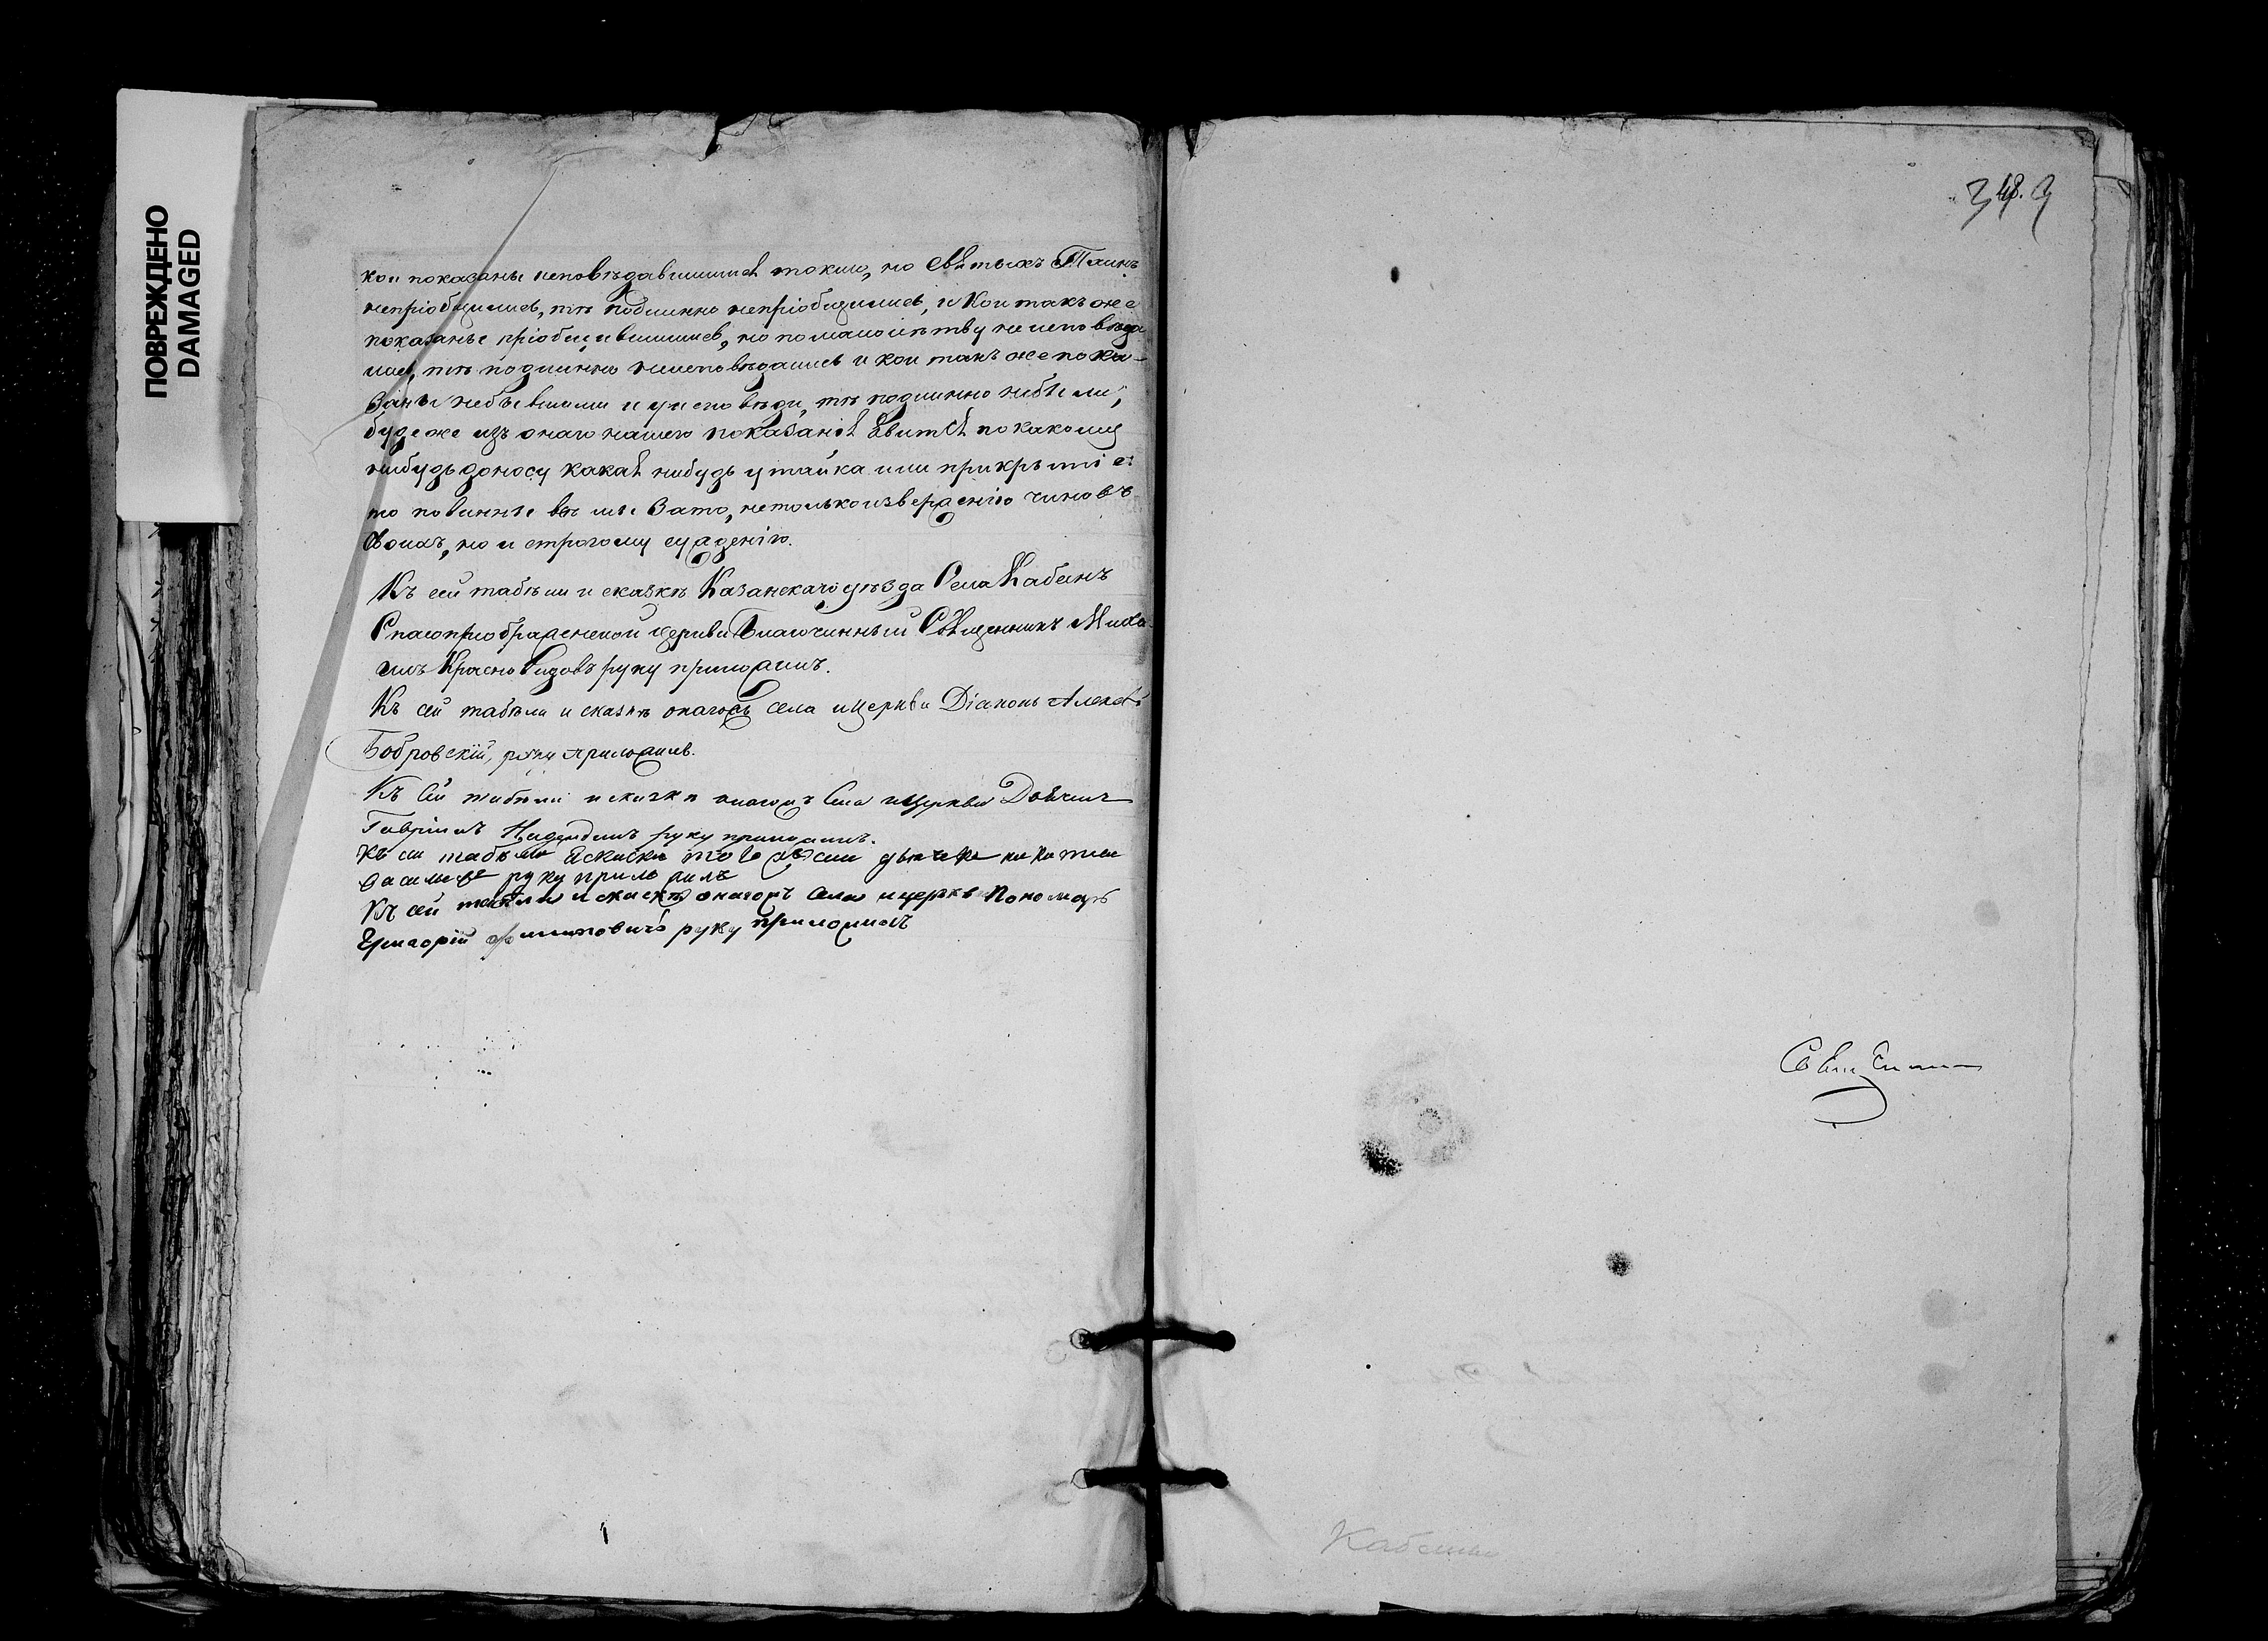 ПОВРЕЖДЕНО
DAMAGED
кои показаны исповѣдавшимися токмо, но Святыхъ Таинъ
непріобщились, тѣ подлинно непріобщились, и кои такъ же
показаны пріобщившимися, но помалолѣтству неисповѣда
лись, тѣ подлинно неисповѣдались и кои такъ же пока-
заны небывшими и уисповѣди, тѣ подлинно небыли;
буде же изъ онаго нашего показанія явится по какому
нибудь доносу какая нибудь утайка или прикрытіе:
то повинны все мы зато, нетолько изверженію чиновъ
своихъ, но и строгому сужденію.
Къ сей табѣли и сказкѣ Казанскаго уѣзда Села Кабанъ
Спасопреображенской церкви Благочинный Священникъ Миха
илъ Красновидовъ руку приложилъ.
Къ сей табѣли и сказкѣ онагожъ села и церкви Діаконъ Алексѣй
Бобровскій, руку приложилъ.
Къ сей табѣли и сказкѣ онагожъ Села и Церкви
Гавріилъ руку приложилъ.
Къ сей табѣли
руку приложилъ
Къ сей табѣли и сказкѣ онагожъ Села и церкви Пономарь
Григорій Филиповичъ руку приложилъ
348.